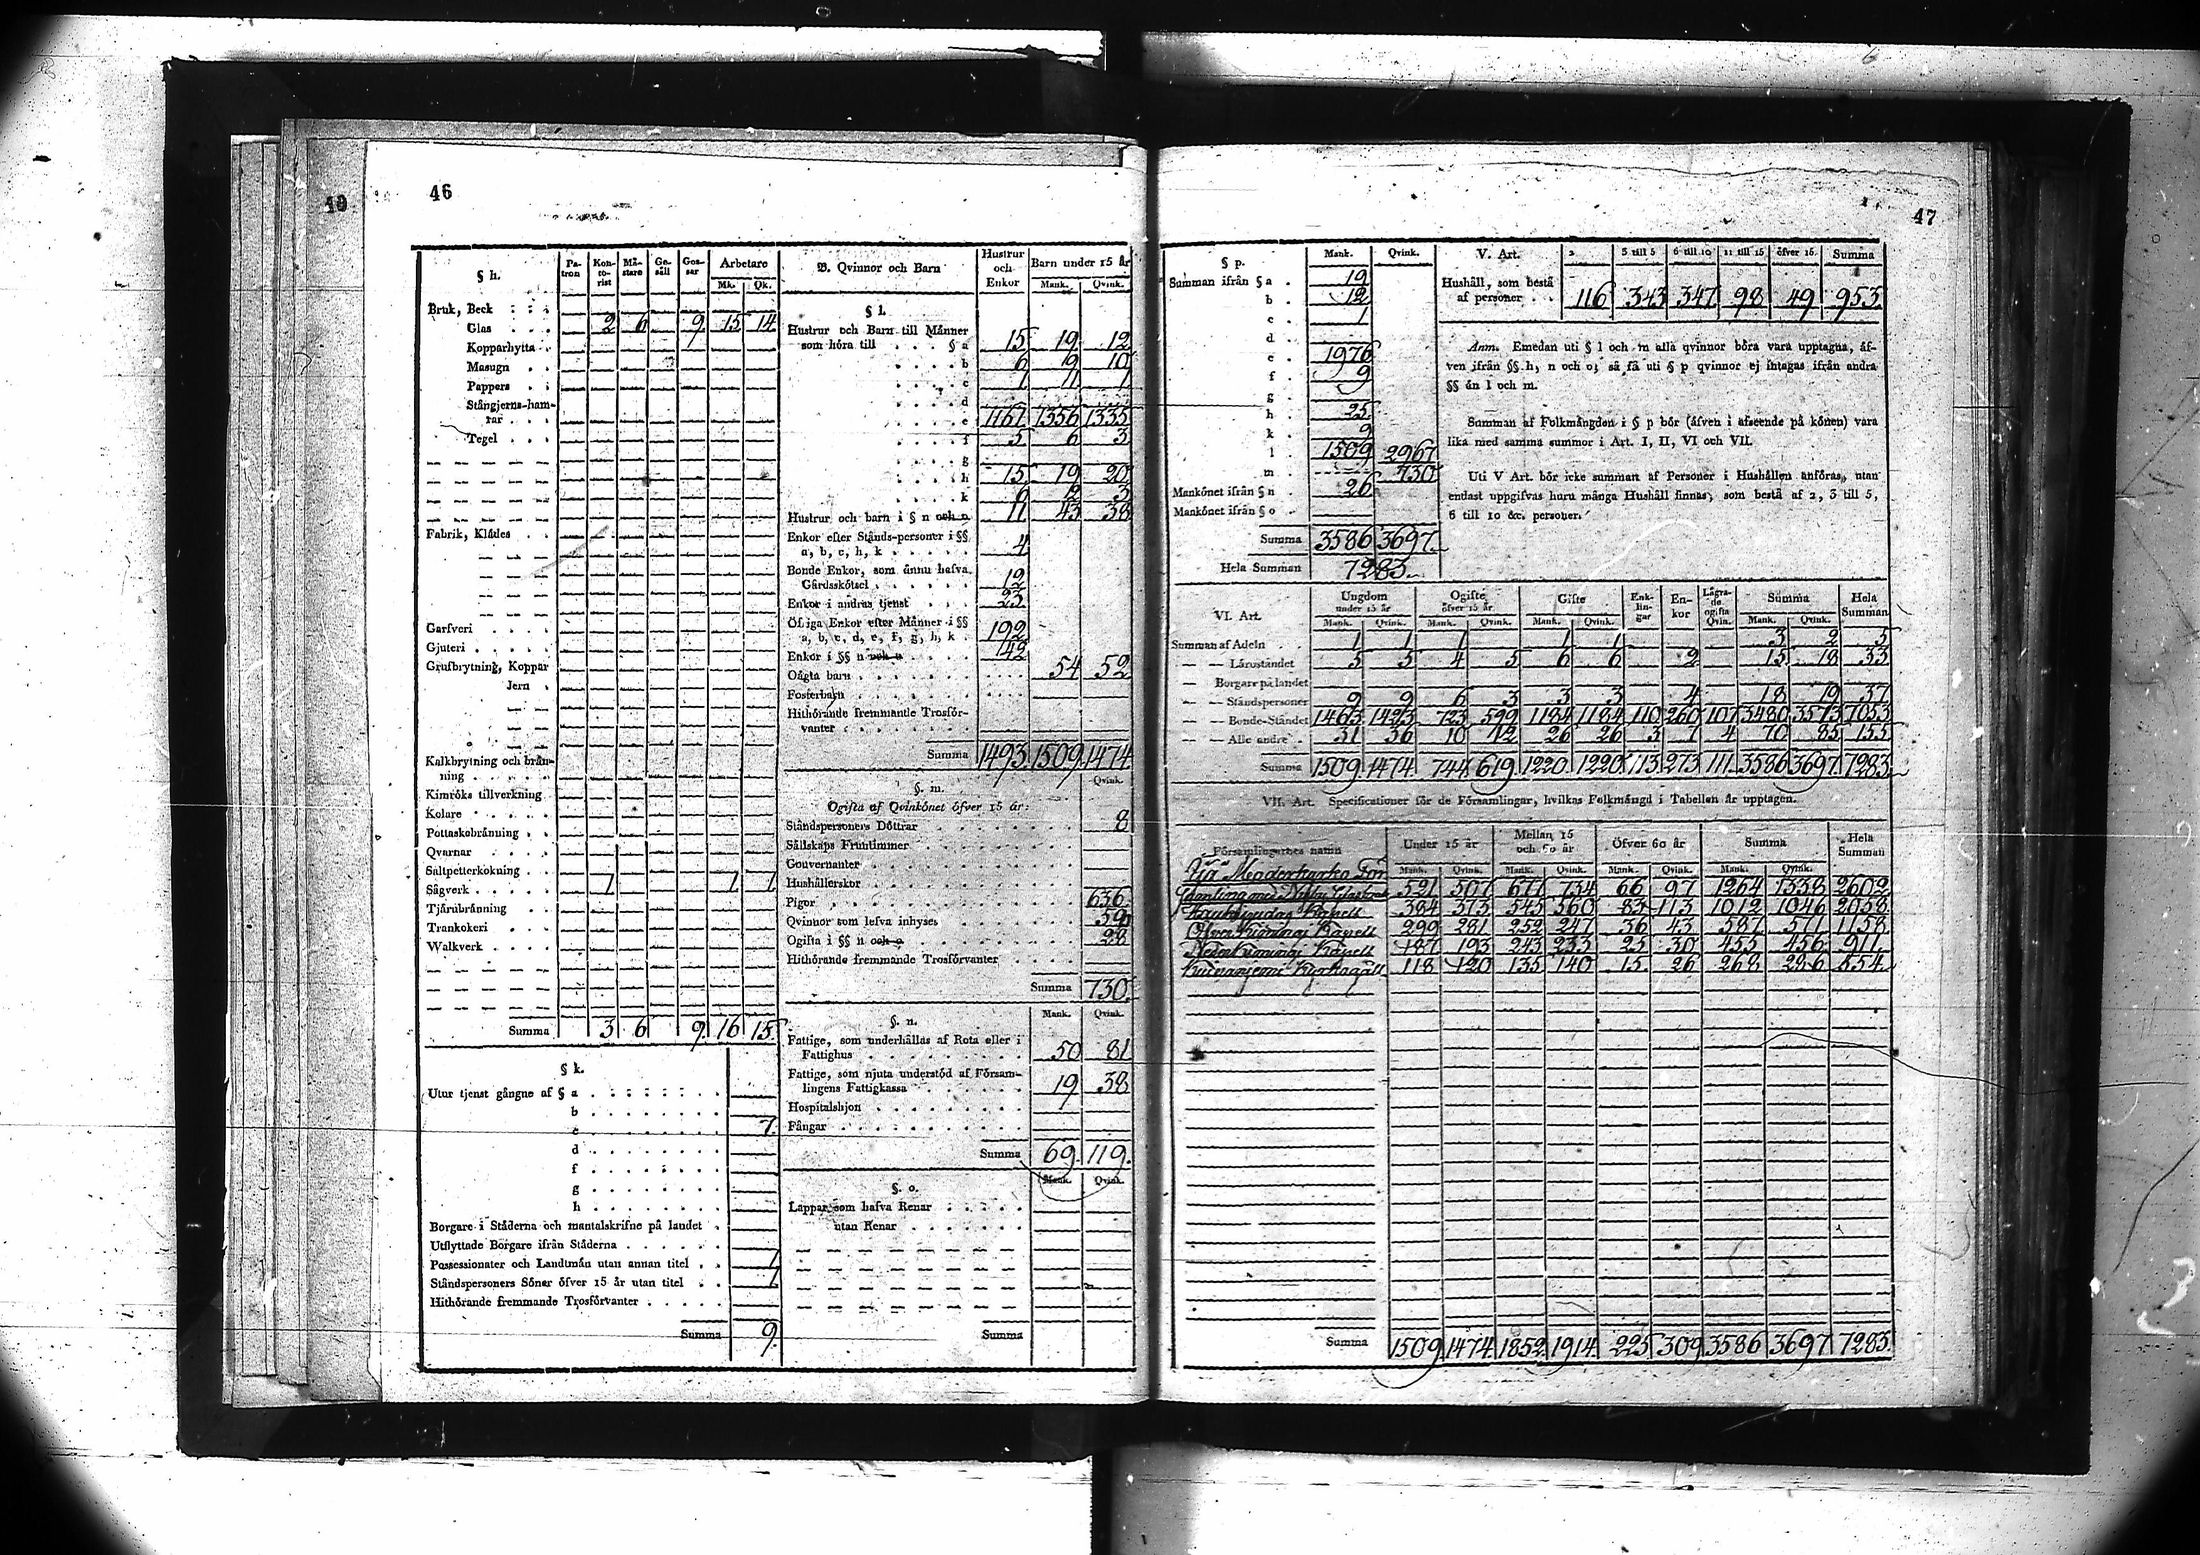 10
46
§ h.
Pa-tron Kon-to-rist Mä-stare Ge-säll Gos-sar Arbetare
Mk. Qk.
Bruk, Beck
Glas 2 6 9 15 14
Kopparhytta
Masugn
Pappers
Stångjerns-ham-
rar
Tegel
Fabrik, Klädes
Garfveri
Gjuteri
Grufbrytning, Koppar
Jern
Kalkbrytning och brän-
ning
Kimröks tillverkning
Kolare
Pottaskobränning
Qvarnar
Saltpetterkokning
Sågverk 1 1 1
Tjärubränning
Trankokeri
Walkverk
Summa 3 6 9 16 15
§ k.
Utur tjenst gångne af § a
b
c 7
d
f
g
h
Borgare i Städerna och mantalskrifne på landet
Utflyttade Borgare ifrån Städerna
Possessionater och Landtmän utan annan titel 1
Ståndspersoners Söner öfver 15 år utan titel 1
Hithörande fremmande Trosförvanter
Summa 9
B. Qvinnor och Barn
Hustrur och Enkor Barn under 15 år
Mank. Qvink.
§ l.
Hustrur och Barn till Männer
som höra till § a 15 19 12
b 6 9 10
c 1 11 1
d
e 1167 1356 1335
f 5 6 3
g
h 15 19 20
k 6 2 3
Hustrur och barn i § n och o 11 43 38
Enkor efter Stånds-personer i §§
a, b, c, h, k 4
Bonde Enkor, som ännu hafva
Gårdsskötsel 12
Enkor i andras tjenst 23
Öfriga Enkor efter Männer i §§
a, b, c, d, e, f, g, h, k 192
Enkor i §§ n och o 42
Oägta barn 54 52
Fosterbarn
Hithörande fremmande Trosför-
vanter
Summa 1493 1509 1474
§. m. Qvink.
Ogifta af Qvinkönet öfver 15 år:
Ståndspersoners Döttrar 8
Sällskaps Fruntimmer
Gouvernanter
Hushållerskor
Pigor 636
Qvinnor som lefva inhyses 59
Ogifta i §§ n och o 28
Hithörande fremmande Trosförvanter
Summa 730
§. n. Mank. Qvink.
Fattige, som underhållas af Rota eller i
Fattighus 50 81
Fattige, som njuta understöd af Försam-
lingens Fattigkassa 19 38
Hospitalshjon
Fångar
Summa 69 119
§. o. Mank. Qvink.
Lappar, som hafva Renar
utan Renar
Summa
47
§ p. Mank. Qvink.
Summan ifrån § a 19
b 12
c 1
d
e 1976
f 9
g
h 25
k 9
l 1509 2967
m 730
Mankönet ifrån § n 26
Mankönet ifrån § o
Summa 3586 3697
Hela Summan 7283
V. Art. 2 3 till 5 6 till 10 11 till 15 öfver 16. Summa
Hushåll, som bestå
af personer 116 343 347 98 49 953
Anm. Emedan uti § l och m alla qvinnor böra vara upptagna, äf-
ven ifrån §§ h, n och o; så få uti § p qvinnor ej intagas ifrån andra
§§ än l och m.
Summan af Folkmängden i § p bör (äfven i afseende på könen) vara
lika med samma summor i Art. I, II, VI och VII.
Uti V Art. bör icke summan af Personer i Hushållen anföras, utan
endast uppgifvas huru många Hushåll finnas, som bestå af 2, 3 till 5,
6 till 10 &c. personer.
VI. Art. Ungdom under 15 år Ogifte öfver 15 år Gifte Enk-lin-gar En-kor Lägra-de ogifta Qvin. Summa Hela Summan
Mank. Qvink. Mank. Qvink. Mank. Qvink. Mank. Qvink.
Summan af Adeln 1 1 1 1 1 3 2 5
Läroståndet 5 5 4 5 6 6 2 15 18 33
Borgare på landet
Ståndspersoner 9 9 6 3 3 3 4 18 19 37
Bonde-Ståndet 1463 1423 723 599 1184 1184 110 260 107 3480 3573 7053
Alle andre 31 36 10 12 26 26 3 7 4 70 85 155
Summa 1509 1474 744 619 1220 1220 113 273 111 3586 3697 7283
VII. Art. Specificationer för de Församlingar, hvilkas Folkmängd i Tabellen är upptagen.
Församlingarnes namn Under 15 år Mellan 15 och 60 år Öfver 60 år Summa Hela Summan
Mank. Qvink. Mank. Qvink. Mank. Qvink. Mank. Qvink.
Ijå Moderkyrko För
samling med Nyby Glasbruk 521 507 677 734 66 97 1264 1338 2602
Haukipudas Kapell 384 373 545 560 83 113 1012 1046 2058
Öfver Kiminge Kapell 299 281 252 247 36 43 587 571 1158
Neder Kiminge Kapell 187 193 243 233 25 30 455 456 911
Kuivaniemi Kyrkogäll 118 120 135 140 15 26 268 286 554
Summa 1509 1474 1852 1914 225 309 3586 3697 7283